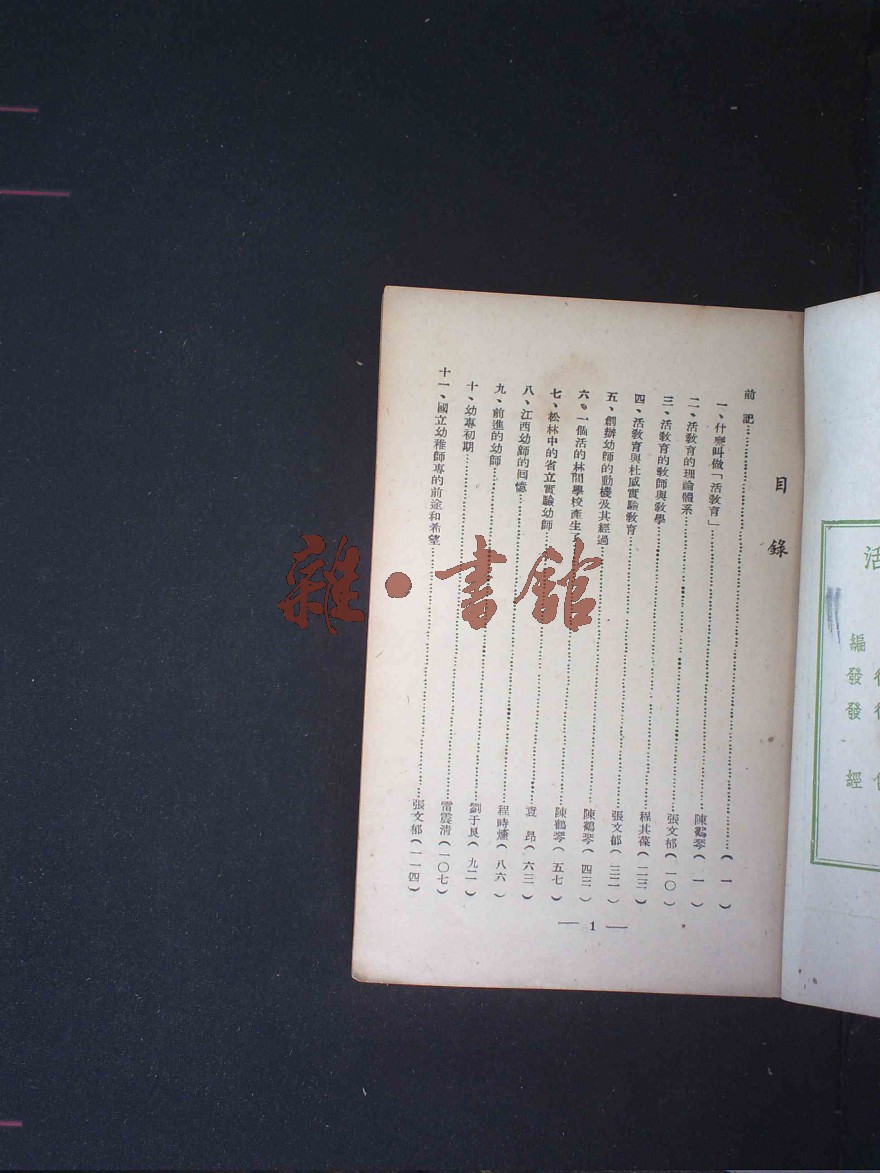 活
編
發行
發行
經
目錄
前記……(一)
一、什麼叫做「活教育」……陳鶴琴(一)
二、活教育的理論體系……張文郁(一〇)
三、活教育的教師與教學……程其葆(二三)
四、活教育與杜威實驗教育……張文郁(三二)
五、創辦幼師的動機及其經過……陳鶴琴(四三)
六、一個活的林間學校產生了……陳鶴琴(五七)
七、松林中的省立實驗幼師……袁昂(六三)
八、江西幼師的回憶……程時煃(八六)
九、前進的幼師……劉于艮(九二)
十、幼專初期……雷震清(一〇七)
十一、國立幼稚師專的前途和希望……張文郁(一一四)
— 1 —
雜·書館